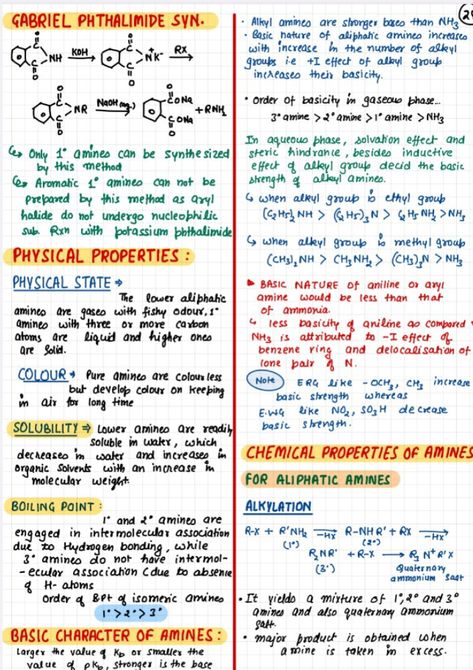 GABRIEL PHTHALIMIDE SYN.
NH KOH N⁻K⁺ RX
NR NaOH(aq.) CONa + RNH
CONa
↳ Only 1° amines can be synthesized
by this method
↳ Aromatic 1° amines can not be
prepared by this method as aryl
halide do not undergo nucleophilic
sub. Rxn with potassium phthalimide
PHYSICAL PROPERTIES :
PHYSICAL STATE ⇒
The lower aliphatic
amines are gases with fishy odour, 1°
amines with three or more carbon
atoms are liquid and higher ones
are solid.
COLOUR → Pure amines are colourless
but develop colour on keeping
in air for long time
SOLUBILITY ⇒ Lower amines are readily
soluble in water, which
decreases in water and increases in
organic solvents with an increase in
molecular weight.
BOILING POINT :
1° and 2° amines are
engaged in intermolecular association
due to Hydrogen bonding, while
3° amines do not have intermol-
-ecular association (due to absence
of H-atoms
Order of B.PT of isomeric amines
1° > 2° > 3°
BASIC CHARACTER OF AMINES :
larger the value of Kb or smaller the
value of pKb, stronger is the base
• Alkyl amines are stronger bases than NH₃
• Basic nature of aliphatic amines increases
with increase in the number of alkyl
groups i.e +I effect of alkyl group
increases their basicity.
• Order of basicity in gaseous phase...
3° amine > 2° amine > 1° amine > NH₃
In aqueous phase, solvation effect and
steric hindrance, besides inductive
effect of alkyl group decid the basic
strength of alkyl amines.
↳ when alkyl group is ethyl group
(C₂H₅)₂NH > (C₂H₅)₃N > C₂H₅NH₂ > NH₃
↳ when alkyl group is methyl group
(CH₃)₂NH > CH₃NH₂ > (CH₃)₃N > NH₃
▸ BASIC NATURE of aniline or aryl
amine would be less than that
of ammonia.
↳ less basicity of aniline as compared
NH₃ is attributed to -I effect of
benzene ring and delocalisation of
lone pair of N.
Note ERG like -OCH₃, CH₃ increase
basic strength whereas
E.WG like NO₂, SO₃H decrease
basic strength.
CHEMICAL PROPERTIES OF AMINES
FOR ALIPHATIC AMINES
ALKYLATION
R-X + R'NH₂ -HX → R-NHR' + RX -HX →
(1°) (2°)
R₂NR' + R-X → R₃N⁺R'X
(3°) Quaternary
ammonium salt
• It yields a mixture of 1°, 2° and 3°
amines and also quaternary ammonium
salt.
• major product is obtained when
amine is taken in excess.